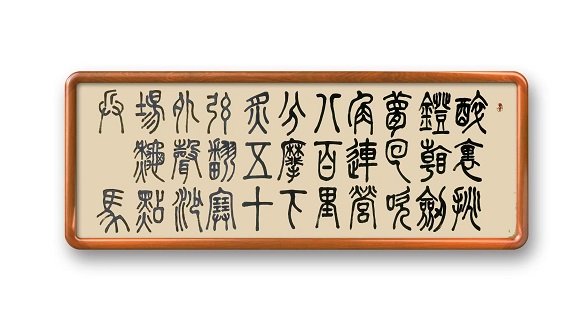 醉裏挑
鐙看劍
夢回吹
角連營
八百里
分麾下
炙五十
弦翻塞
外聲沙
場秋點
兵 馬